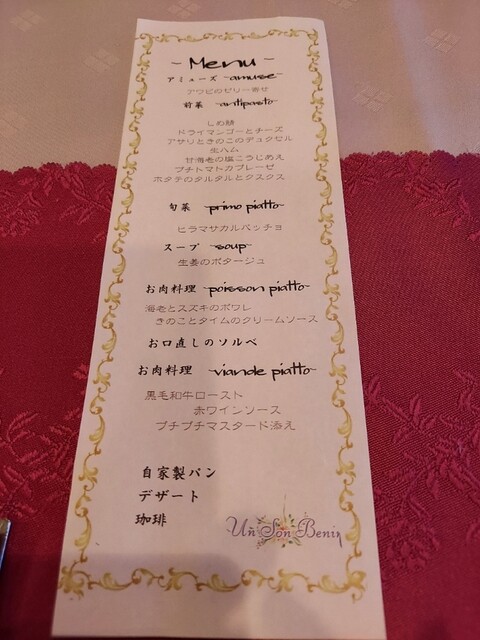 - Menu -
アミューズ -amuse-
アワビのゼリー寄せ
前菜 -antipasto-
しめ鯖
ドライマンゴーとチーズ
アサリときのこのデュクセル
生ハム
甘海老の塩こうじあえ
プチトマトカプレーゼ
ホタテのタルタルとクスクス
旬菜 -primo piatto-
ヒラマサカルパッチョ
スープ -soup-
生姜のポタージュ
お肉料理 -poisson piatto-
海老とスズキのポワレ
きのことタイムのクリームソース
お口直しのソルベ
お肉料理 -viande piatto-
黒毛和牛ロースト
赤ワインソース
プチプチマスタード添え
自家製パン
デザート
珈琲
Un Son Benir